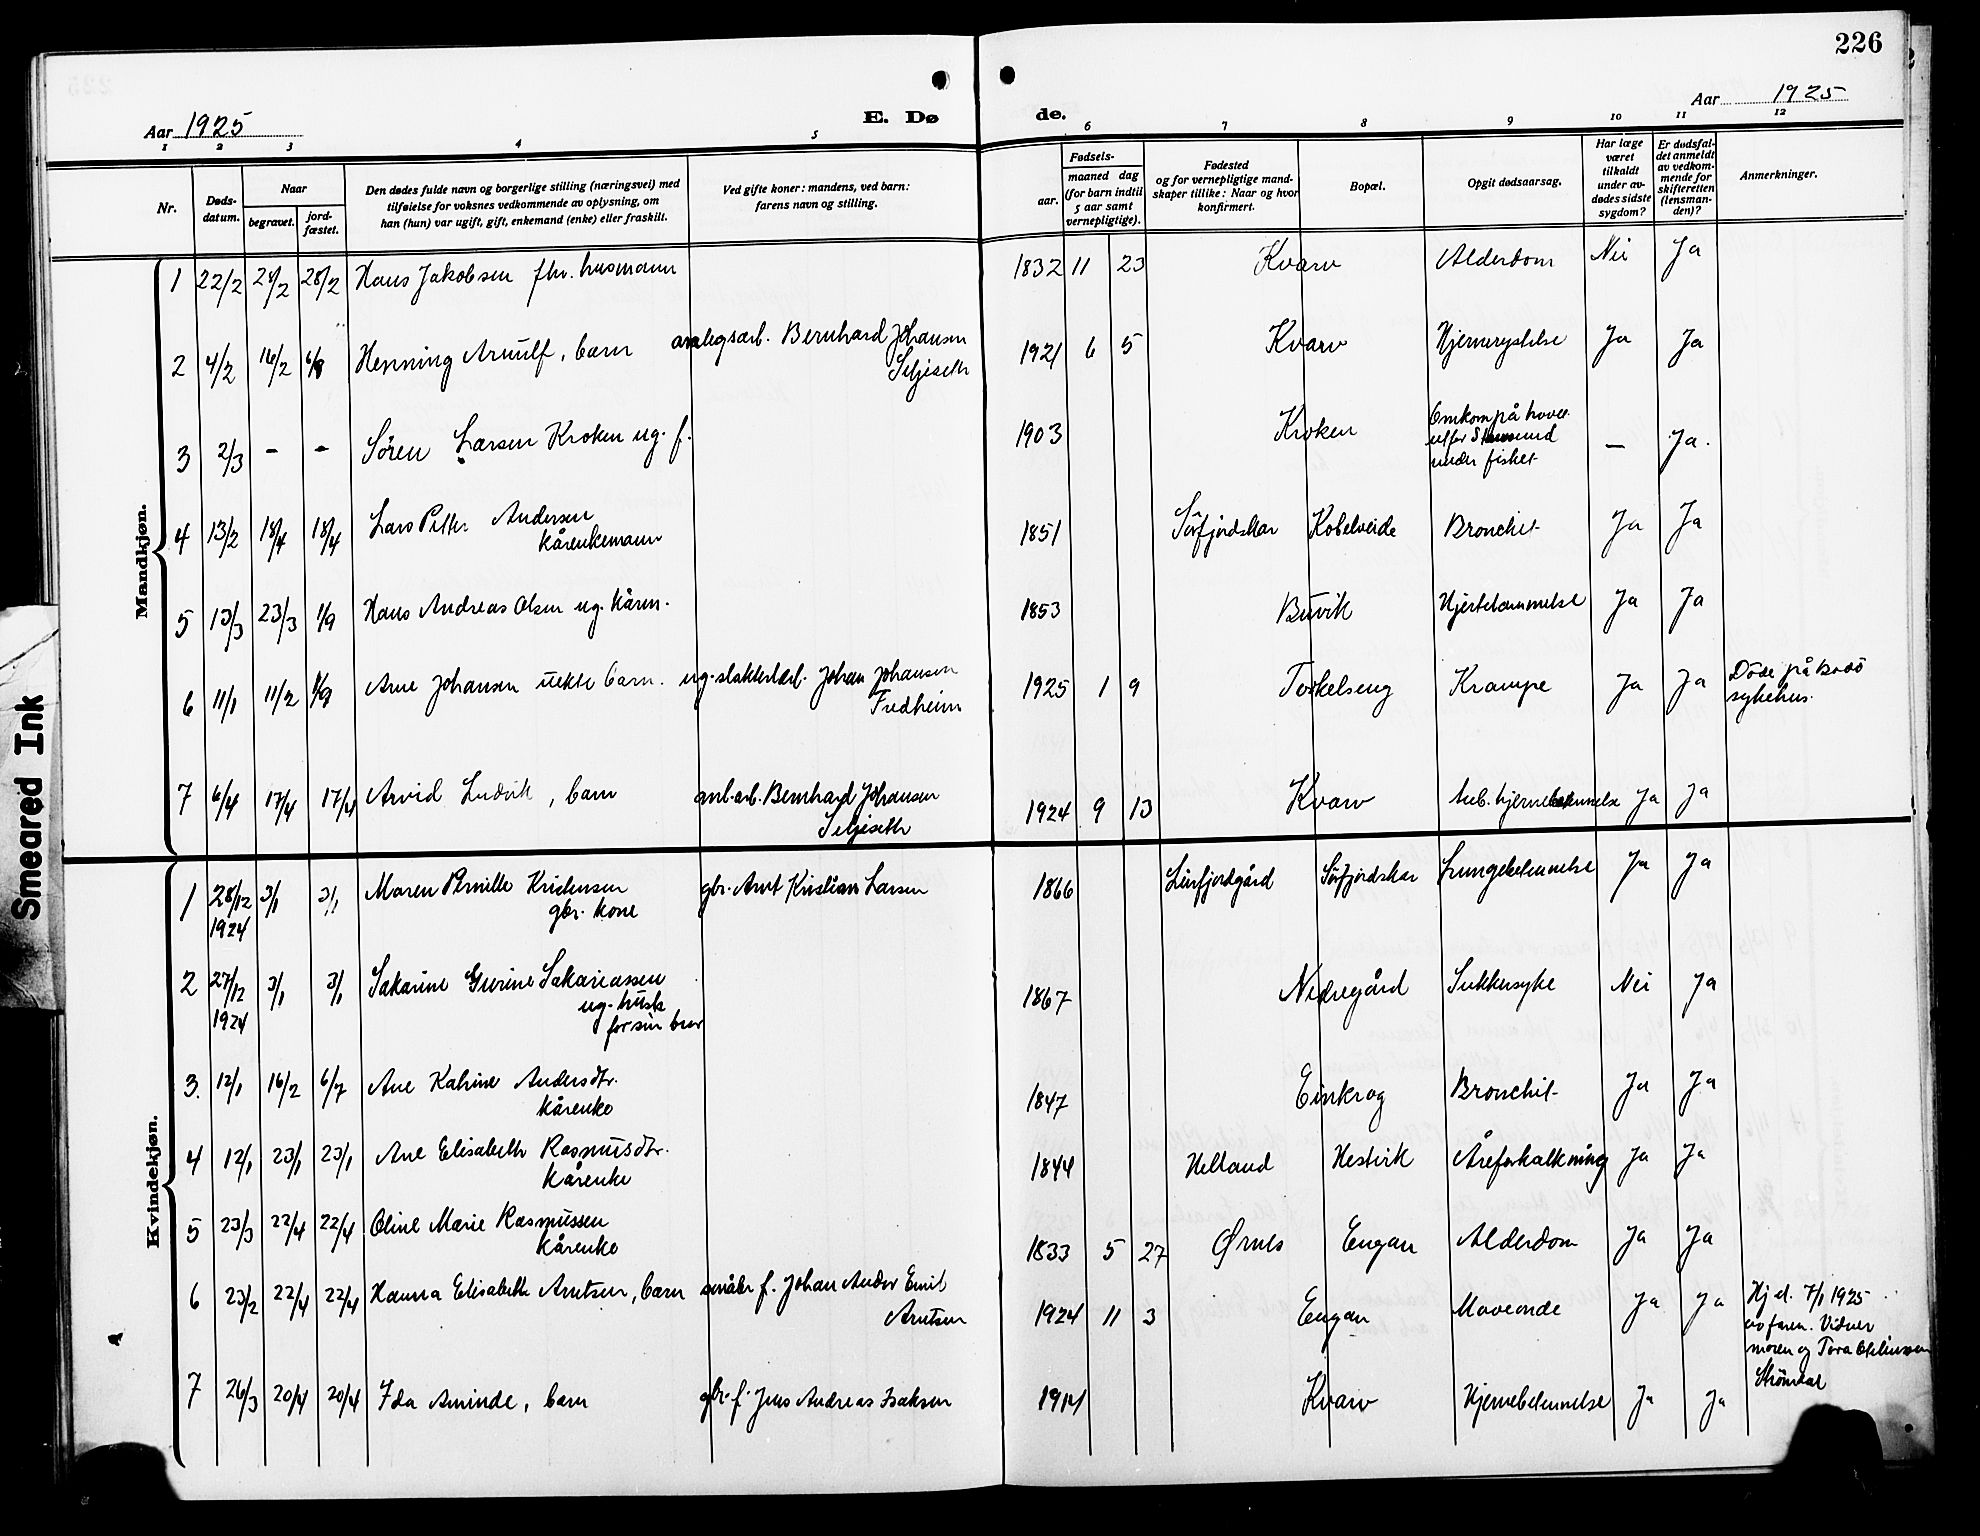 226
Aar 1925
E. Dø
de.
Aar 1925
1 2 3 4 5 6 7 8 9 10 11 12
Nr.
Døds-
datum.
Naar
begravet.
jord-
fæstet.
Den dødes fulde navn og borgerlige stilling (næringsvei) med
tilføielse for voksnes vedkommende av oplysning, om
han (hun) var ugift, gift, enkemand (enke) eller fraskilt.
Ved gifte koner: mandens, ved barn:
farens navn og stilling.
Fødsels-
aar.
maaned dag
(for barn indtil
5 aar samt
vernepligtige).
Fødested
og for vernepligtige mand-
skaper tillike: Naar og hvor
konfirmert.
Bopæl.
Opgit dødsaarsag.
Har læge
været
tilkaldt
under av-
dødes sidste
sygdom?
Er dødsfal-
det anmeldt
av vedkom-
mende for
skifteretten
(lensman-
den)?
Anmerkninger.
Mandkjøn.
1 22/2 28/2 28/2 Hans Jakobsen fhv. husmann 1832 11 23 Kvarv Alderdom Nei Ja
2 4/2 16/2 Henning Arnulf, barn anlegsarb. Bernhard Johansen
Seljeseth
1921 6 5 Kvarv Hjernerystelse Ja Ja
3 2/3 - - Sören Larsen Kroken ug. f. 1903 Kroken Omkom på havet
utfor Stamsund
under fisket
— Ja.
4 13/2 18/4 18/4 Lars Petter Andersen
kårenkemann
1851 Sörfjordskar Kobelveide Bronchit Ja Ja
5 13/3 23/3 1/9 Hans Andreas Olsen ug. kårm. 1853 Buvik Hjertelammelse Ja Ja
6 11/1 11/2 1/9 Arne Johansen uekte barn. ug. slakteriarb. Johan Johansen
Fredheim
1925 1 9 Torkelseng Krampe Ja Ja Döde på Bodö
sykehus.
7 6/4 17/4 17/4 Arvid Ludvik, barn anl.arb. Bernhard Johansen
Seljeseth
1924 9 13 Kvarv tub. hjernebetennelse Ja Ja
Kvindekjøn.
1 28/12 3/1 3/1 Maren Pernille Kristensen gbr. Arnt Kristian Larsen
1924 gbr. kone
1866 Leirfjordgård Sörfjordskar Lungebetennelse Ja Ja
2 27/12 3/1 3/1 Sakarine Gurine Sakariassen
1924 ug. hush.
for sin bror
1867 Nedregård Sukkersyke Nei Ja
3. 12/1 16/2 6/7 Ane Katrine Andersdtr.
kårenke
1847 Einkrog Bronchit Ja Ja
4 12/1 23/1 23/1 Ane Elisabeth Rasmusdtr.
kårenke
1844 Helland Hestvik Åreforkalkning Ja Ja
5 23/3 22/4 22/4 Oline Marie Rasmussen
kårenke
1833 5 27 Ørnes Engan Alderdom Ja Ja
6 23/2 22/4 22/4 Hanna Elisabeth Arntsen, barn småbr f. Johan Andor Emil
Arntsen
1924 11 3 Engan Maveonde Ja Ja Hj d. 7/1 1925
av faren. Vidner
moren og Tora
Strömdal
7 26/3 20/4 20/4 Ida Aminde, barn gbr. f. Jens Andreas Isaksen
1914 Kvarv Hjernebetennelse Ja Ja
Smeared Ink